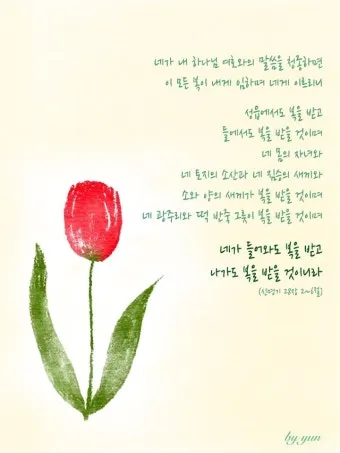 네가 네 하나님 여호와의 말씀을 청종하면
이 모든 복이 네게 임하며 네게 이르리니
성읍에서도 복을 받고
들에서도 복을 받을 것이며
네 몸의 자녀와
네 토지의 소산과 네 짐승의 새끼와
소와 양의 새끼가 복을 받을 것이며
네 광주리와 떡 반죽 그릇이 복을 받을 것이며
네가 들어와도 복을 받고
나가도 복을 받을 것이니라
(신명기 28장 2~6절)
by yun